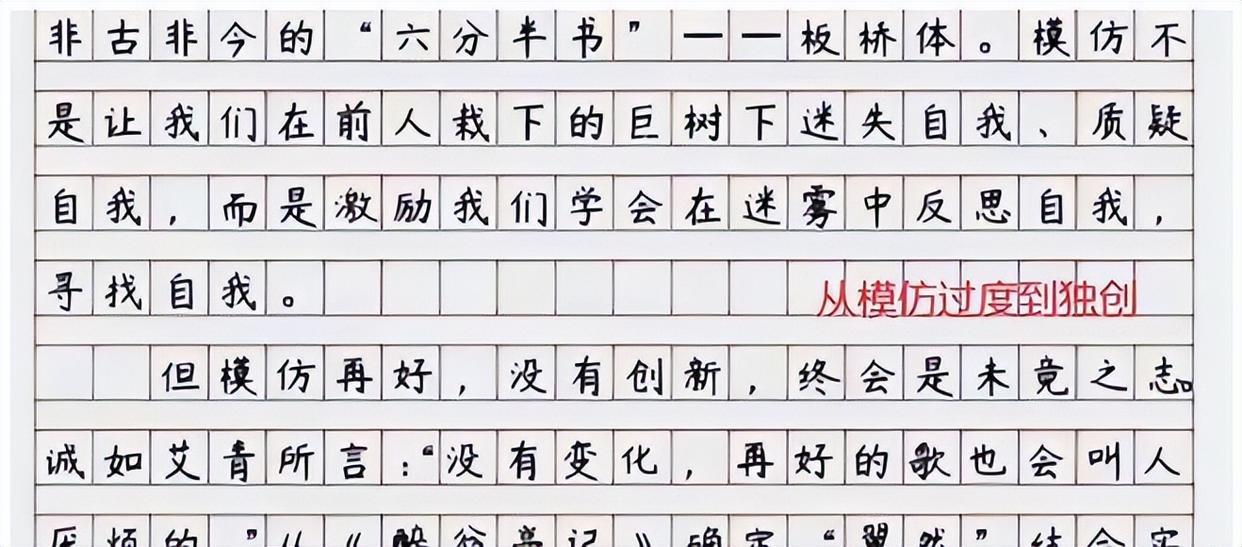 非古非今的“六分半书”——板桥体。模仿不
是让我们在前人栽下的巨树下迷失自我、质疑
自我，而是激励我们学会在迷雾中反思自我，
寻找自我。
从模仿过度到独创
但模仿再好，没有创新，终会是未竟之志。
诚如艾青所言：“没有变化，再好的歌也会叫人
厌烦的”从《醉翁亭记》确定“翼然”结合实